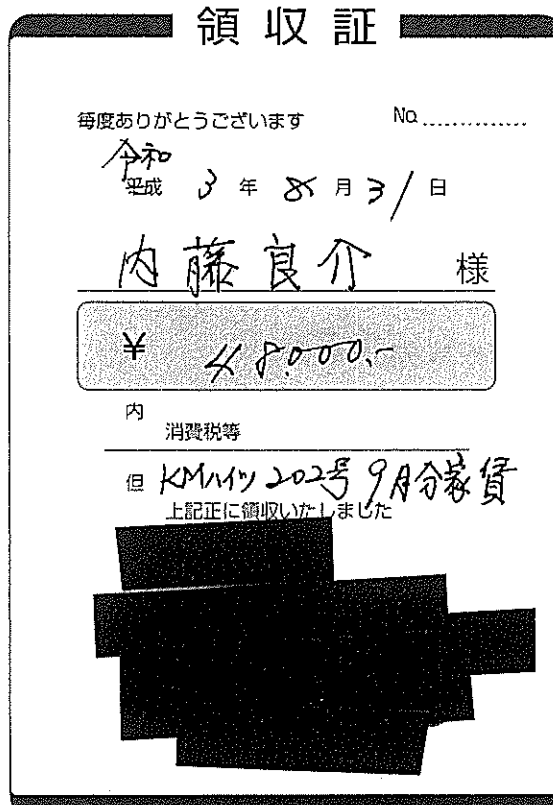 領収証
毎度ありがとうございます No.
令和
平成 3 年 8 月 31 日
内藤良介 様
¥ 48,000.-
内
消費税等
但 KMハイツ 202号 9月分家賃
上記正に領収いたしました